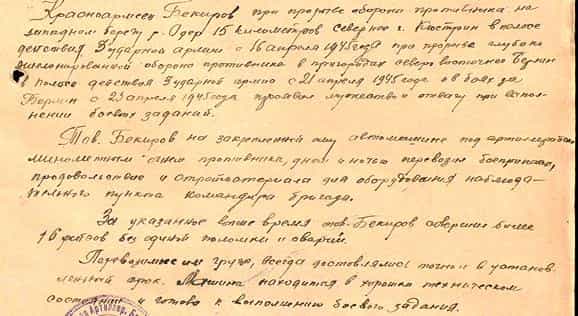 Красноармеец Бекиров при прорыве обороны противника на
западном берегу р. Одер 15 километров севернее г. Кюстрин в полосе
действия 3 ударной армии с 16 апреля 1945 года при прорыве глубоко
эшелонированной обороны противника в пригородах северо восточнее Берлин
в полосе действий 3 ударной армии с 21 апреля 1945 года и в боях за
Берлин с 23 апреля 1945 года проявил мужество и отвагу при выпол-
нении боевых заданий.
Тов. Бекиров на закрепленной ему автомашине под
минометным огнем противника, днем и ночью перевозил боеприпасы,
продовольствие и стройматериала для оборудования наблюда-
тельного пункта командира бригады.
За указанное выше время тов. Бекиров совершил более
16 рейсов без единой поломки и аварий.
Перевозимые им грузы, всегда доставлялись точно и в установ-
ленный срок. Машина находится в хорошем техническом
состоянии и готова к выполнению боевого задания.